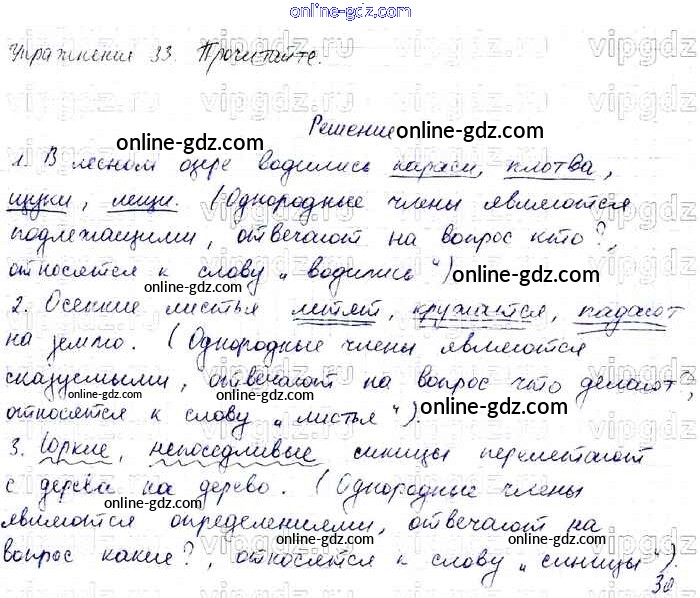 online-gdz.com
Упражнение 33. Прочитайте.
Решение
online-gdz.com
online-gdz.com
1. В лесном озере водились караси, плотва,
щуки, лещи. (Однородные члены являются
online-gdz.com
подлежащими, отвечают на вопрос кто?,
относятся к слову „водились“)
online-gdz.com
2. Осенние листья летят, кружатся, падают
online-gdz.com
на землю. (Однородные члены являются
сказуемыми, отвечают на вопрос что делают?,
относятся к слову „листья“).
online-gdz.com
3. Юркие, непоседливые синицы перелетают
online-gdz.com
с дерева на дерево. (Однородные члены
являются определениями, отвечают на
вопрос какие?, относятся к слову „синицы“).
online-gdz.com